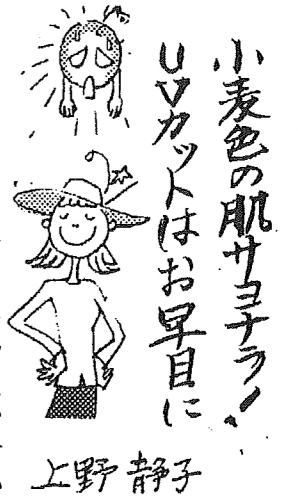 小麦色の肌サヨナラ!
UVカットはお早目に
上野静子